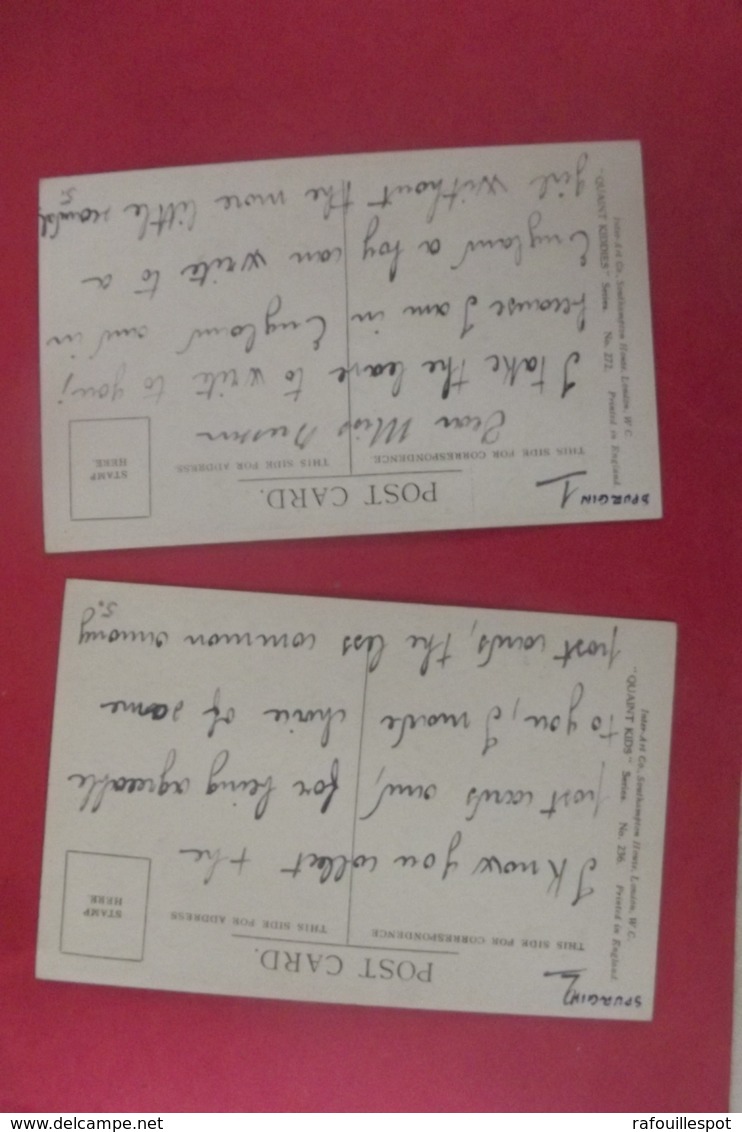 SPURGIN 1
POST CARD.
THIS SIDE FOR CORRESPONDENCE.
THIS SIDE FOR ADDRESS
STAMP
HERE.
Inter-Art Co., Southampton House, London, W.C.
"QUAINT KIDDIES" Series. No. 272. Printed in England
Dear Miss
I take the leave to write to you;
because I am in England and in
England a boy can write to a
girl without the more little scandal
5.
SPURGIN 2
POST CARD.
THIS SIDE FOR CORRESPONDENCE
THIS SIDE FOR ADDRESS
STAMP
HERE.
Inter-Art Co., Southampton House, London, W.C.
"QUAINT KIDS" Series. No. 236. Printed in England
I know you collect the
post cards and, for being agreeable
to you, I made choice of some
post cards, the less common among
5.
www.delcampe.net
rafouillespot